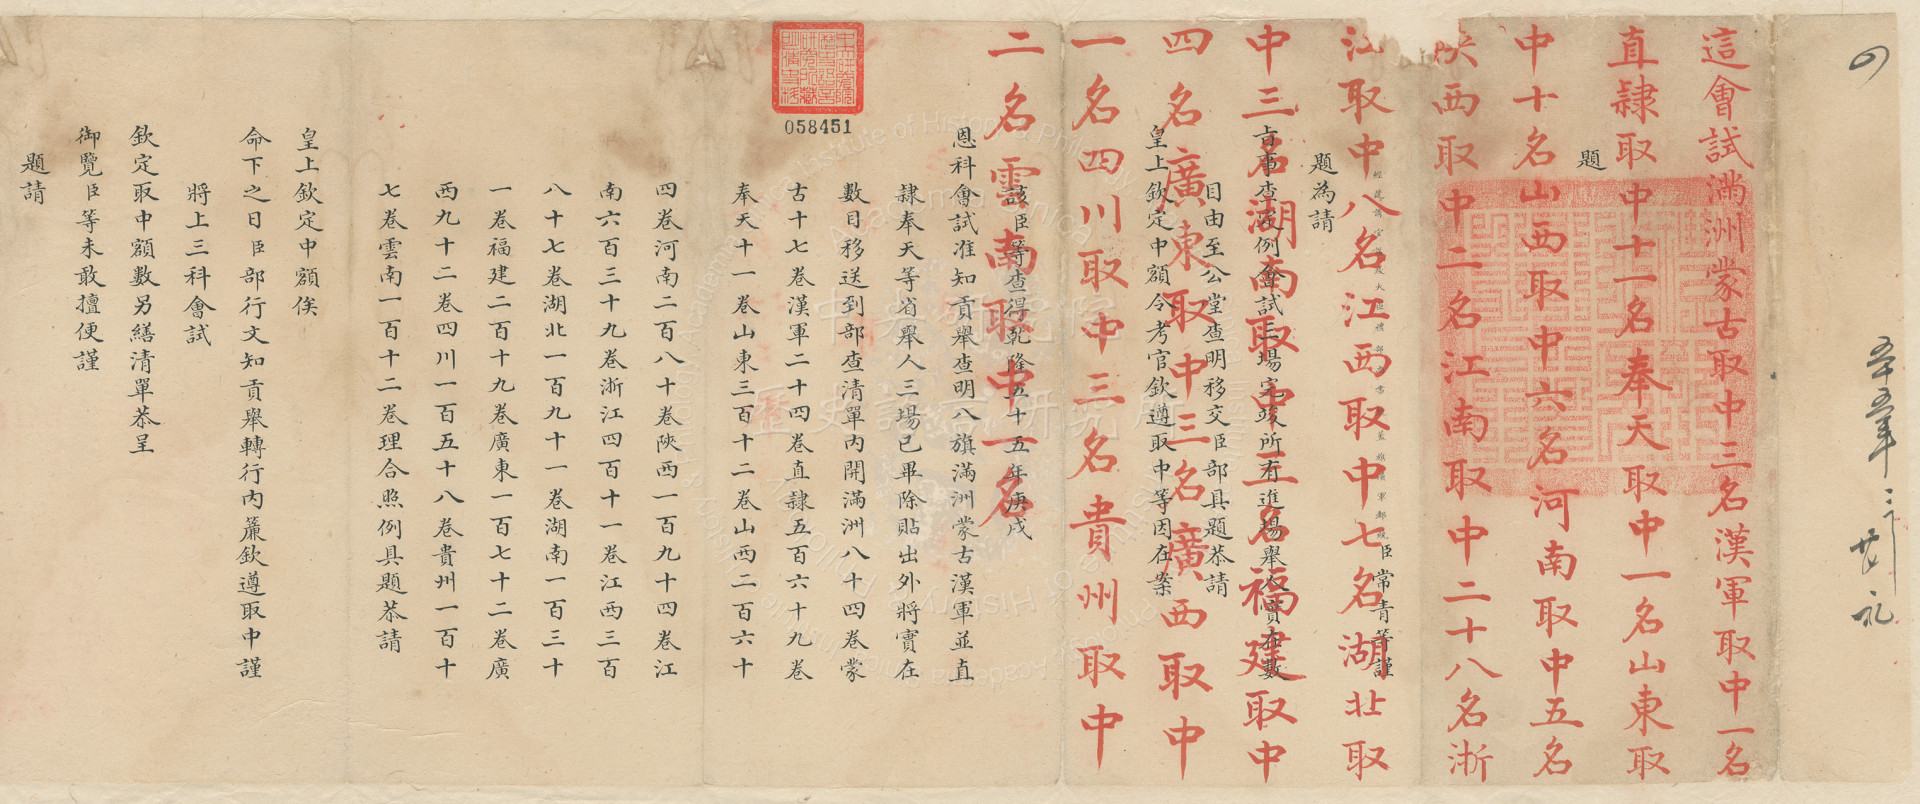 這會試滿洲蒙古取中三名漢軍取中一名
直隸取中十一名奉天取中一名山東取
中十名山西取中六名河南取中五名
陝西取中二名江南取中二十八名浙
江取中八名江西取中七名湖北取
中三名湖南取中三名福建取中
四名廣東取中三名廣西取中
一名四川取中三名貴州取中
二名雲南取中一名
題
臣常青等謹
題為請
旨事查定例會試三場完竣所有進場舉人實在數
目由至公堂查明移交臣部具題恭請
皇上欽定中額令考官欽遵取中等因在案
該臣等查得乾隆五十五年庚戌
恩科會試准知貢舉查明八旗滿洲蒙古漢軍並直
隸奉天等省舉人三場已畢除貼出外將實在
數目移送到部查清單內開滿洲八十四卷蒙
古十七卷漢軍二十四卷直隸五百六十九卷
奉天十一卷山東三百十二卷山西二百六十
四卷河南二百八十卷陝西一百九十四卷江
南六百三十九卷浙江四百十一卷江西三百
八十七卷湖北一百九十一卷湖南一百三十
一卷福建二百十九卷廣東一百七十二卷廣
西九十二卷四川一百五十八卷貴州一百十
七卷雲南一百十二卷理合照例具題恭請
皇上欽定中額俟
命下之日臣部行文知貢舉轉行內簾欽遵取中謹
將上三科會試
欽定取中額數另繕清單恭呈
御覽臣等未敢擅便謹
題請
058451